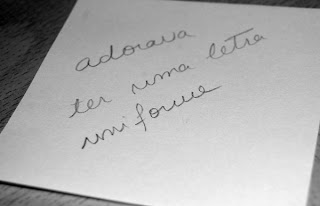 adorava
ter uma letra
uniforme